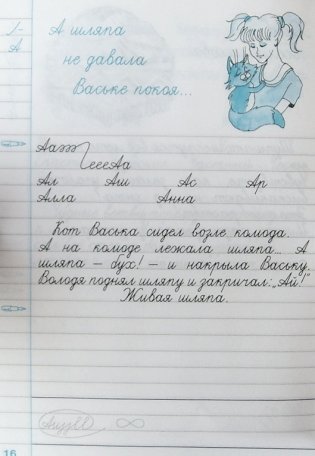 1-
А
А шляпа
не давала
Ваське покоя...
Ааэээ
ееееАа
Ал Аш Ас Ар
Алла Анна
Кот Васька сидел возле комода.
А на комоде лежала шляпа... А
шляпа – бух! – и накрыла Ваську.
Володя поднял шляпу и закричал: „Ай!"
Живая шляпа.
16